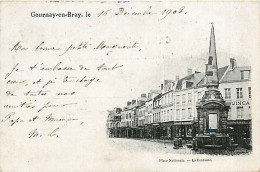 Gournay-en-Bray, le 16 Décembre 1902.
Ma bonne petite Marguerite,
Je t'embrasse de tout
cœur, et je te charge
de toutes nos
amitiés pour
Papa et Maman,
QUINCA
Place Nationale. — La Fontaine